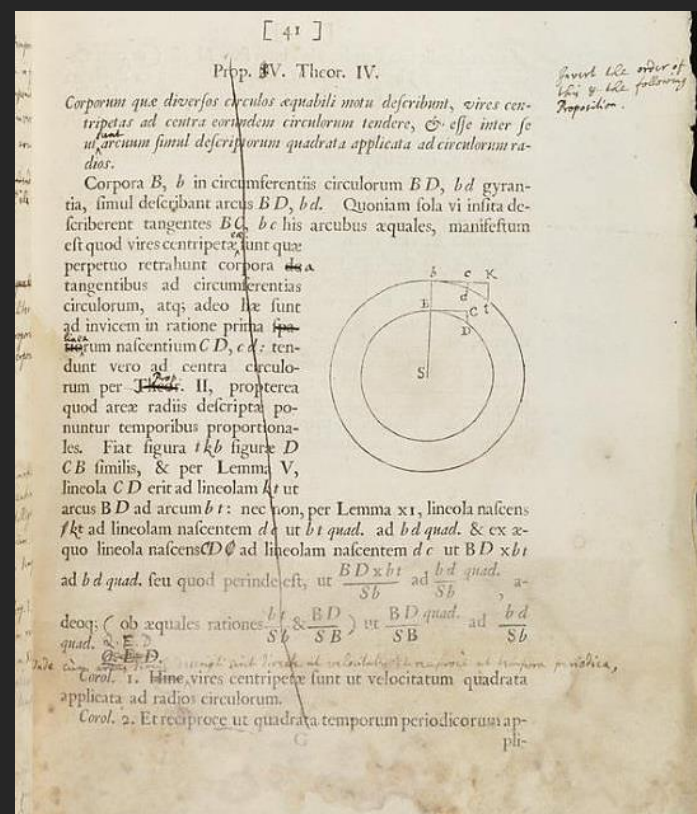 [ 41 ]
Prop. IV. Theor. IV.
Invert the order of
this & the following
Proposition.
Corporum quæ diversos circulos æquabili motu describunt, vires cen-
tripetas ad centra eorundem circulorum tendere, & esse inter se
ut arcuum simul descriptorum quadrata applicata ad circulorum ra-
dios.
Corpora B, b in circumferentiis circulorum BD, bd gyran-
tia, simul describant arcus BD, bd. Quoniam sola vi insita de-
scriberent tangentes BC, bc his arcubus æquales, manifestum
est quod vires centripetæ sunt quæ
perpetuo retrahunt corpora a
tangentibus ad circumferentias
circulorum, atq; adeo hæ sunt
ad invicem in ratione prima spa-
tiorum nascentium CD, cd: ten-
dunt vero ad centra circulo-
rum per Theor. II, propterea
quod areæ radiis descriptæ po-
nuntur temporibus proportiona-
les. Fiat figura tkb figuræ D
CB similis, & per Lemma V,
lineola CD erit ad lineolam kt ut
arcus BD ad arcum bt: nec non, per Lemma XI, lineola nascens
kt ad lineolam nascentem dc ut bt quad. ad bd quad. & ex æ-
quo lineola nascens CD ad lineolam nascentem dc ut BD x bt
ad bd quad. seu quod perinde est, ut BD x bt / Sb ad bd quad. / Sb, a-
deoq; (ob æquales rationes bt / Sb & BD / SB) ut BD quad. / SB ad bd / Sb
quad. Q. E. D.
Q. E. D.
Corol. 1. Hinc vires centripetæ sunt ut velocitatum quadrata
applicata ad radios circulorum.
Corol. 2. Et reciproce ut quadrata temporum periodicorum ap-
G
pli-
b c K
d t
B C
D
S